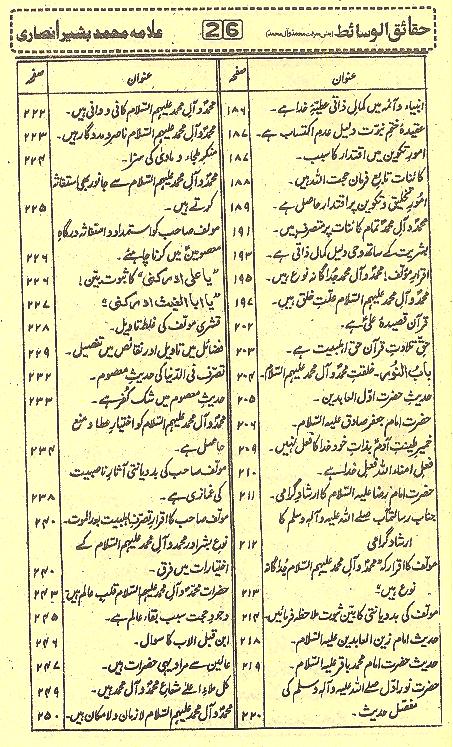 حقائق الوسائط
26
علامہ محمد بشیر انصاری
عنوان صفحہ
انبیاء و آئمہ میں کمال ذاتی عطیۂ خدا ہے۔ ۱۸۶
عقیدۂ ختم نبوت دلیل عدم اکتساب ہے۔ ۱۸۷
امور تکوین میں اقتدار کا سبب۔ ۱۸۷
کائنات تابع فرمان حجت اللہ ہیں۔ ۱۸۸
امور تخلیق و تکوین پر اقتدار حاصل ہے۔ ۱۸۹
محمدؐ و آل محمدؐ تمام کائنات پر متصرف ہیں۔ ۱۹۱
بشریت کے ساتھ وحی دلیل کمال ذاتی ہے۔ ۱۹۳
اقرار مؤلف! محمدؐ و آل محمدؐ جداگانہ نوع ہیں۔ ۱۹۵
محمدؐ و آل محمد علیہم السلام علت خلق ہیں۔ ۱۹۷
قرآن قصیدۂ علیؑ ہے۔ ۲۰۲
حق تلاوت قرآن حق اہلبیت ہے۔ ۲۰۳
باب النصوص۔ خلقت محمدؐ و آل محمد علیہم السلام۔ ۲۰۴
حدیث حضرت اول العابدین۔ ۲۰۵
حضرت امام جعفر صادق علیہ السلام۔ ۲۰۶
خمیر طینت آدمؑ بذات خود خدا کا فعل نہیں۔ ۲۰۹
فعل امناء اللہ فعل خدا ہے۔ ۲۱۰
حضرت امام رضا علیہ السلام کا ارشاد گرامی۔ ۲۱۱
جناب رسالتمآب صلے اللہ علیہ وآلہ وسلم کا
ارشاد گرامی ۲۱۲
مولف کا اقرار کہ "محمدؐ و آل محمد علیہم السلام جداگانہ
نوع ہیں" ۲۱۳
مولف کی بددیانتی کا بین ثبوت ملاحظہ فرمائیں۔ ۲۱۴
حدیث امام زین العابدین علیہ السلام۔ ۲۱۸
حدیث حضرت امام محمد باقر علیہ السلام۔ ۲۱۹
حضرت نور اول صلے اللہ علیہ وآلہ وسلم کی
مفصل حدیث۔ ۲۲۰
عنوان صفحہ
محمدؐ و آل محمد علیہم السلام کافی و وافی ہیں۔ ۲۲۲
محمدؐ و آل محمد علیہم السلام ناصر و مددگار ہیں۔ ۲۲۳
منکر ملجاء و ماویٰ کی سزا۔ ۲۲۴
محمدؐ و آل محمد علیہم السلام سے جانور بھی استغاثہ
کرتے ہیں۔ ۲۲۵
مولف صاحب کو استمداد و استغاثہ درگاہ
معصومینؑ میں کرنا چاہئے۔ ۲۲۶
"یا علی ادرکنی" کا ثبوت بین! ۲۲۶
"یا ابا الغیث ادرکنی" ۲۲۷
قشری مولف کی غلط تاویل۔ ۲۲۸
فضائل میں تاویل اور نقائص میں تفصیل۔ ۲۲۹
تصرف فی الدنیا کی حدیث معصوم۔ ۲۳۲
حدیث معصوم میں شک کفر ہے۔ ۲۳۳
محمدؐ و آل محمد علیہم السلام کو اختیار عطا و منع
حاصل ہے۔ ۲۳۴
مولف صاحب کی بددیانتی آثار ناصبیت
کی غمازی ہے۔ ۲۳۸
مولف صاحب کا اقرار تصرف اہلبیت بعد الموت۔ ۲۴۰
نوع بشر اور محمدؐ و آل محمد علیہم السلام کے
اختیارات میں فرق۔ ۲۴۰
حضرات محمدؐ و آل محمد علیہم السلام قلب عالم ہیں ۲۴۳
وجود حجت سبب بقاء عالم ہے۔ ۲۴۵
ابن قبل الاب کا سوال۔ ۲۴۶
عالین سے مراد یہی حضرات ہیں۔ ۲۴۷
کل ملاء اعلے شعاع محمدؐ و آل محمدؐ ہیں۔ ۲۴۹
محمدؐ و آل محمد علیہم السلام لازمان و لامکان ہیں۔ ۲۵۰